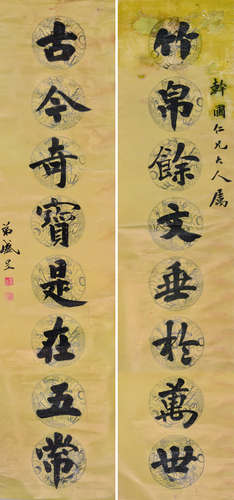 幹國仁兄大人屬
竹帛餘文垂於萬世
古今奇寶是在五常